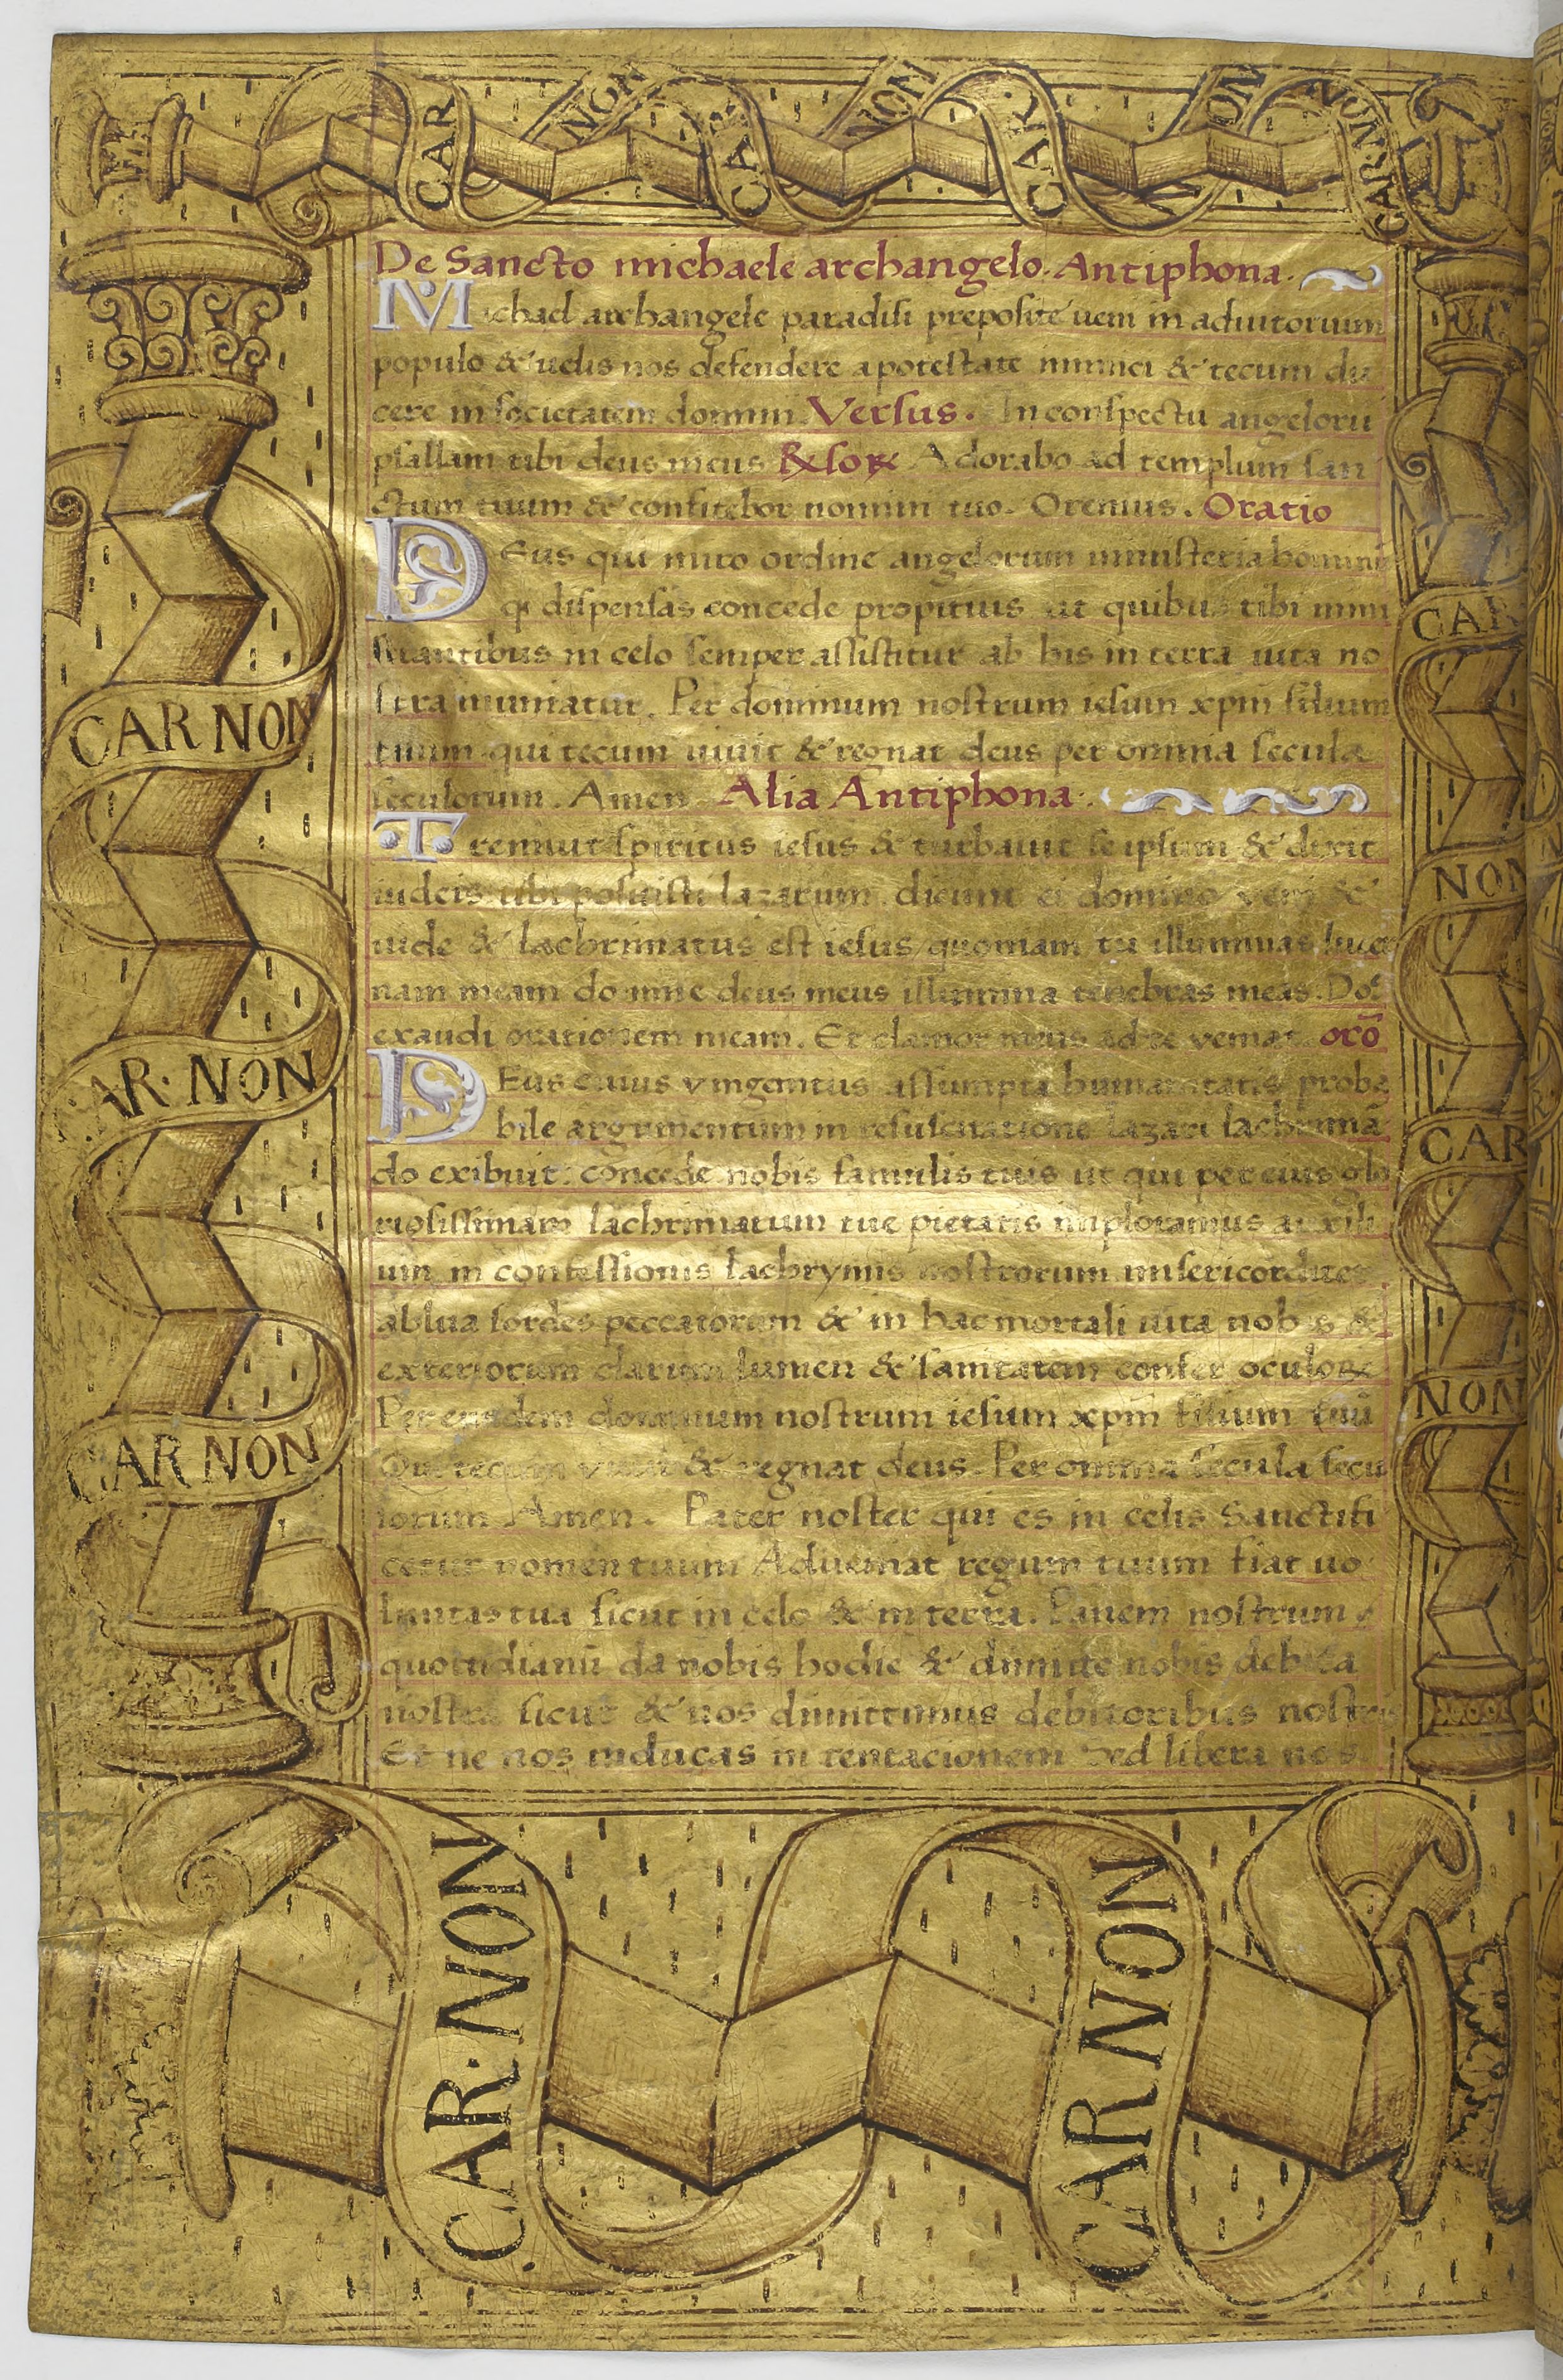 CAR NON CAR NON CAR· NON CAR·NON
De Sancto michaele archangelo. Antiphona.
Michael archangele paradisi preposite ueni in adiutorium
populo & uelis nos defendere a potestate inimici & tecum du
cere in societatem domini. Versus. In conspectu angeloru
psallam tibi deus meus Adorabo ad templum san
ctum tuum & confitebor nomini tuo. Oremus. Oratio
DEus qui miro ordine angelorum ministeria homini
q dispensas concede propitius ut quibus tibi mini
strantibus in celo semper assistitur ab his in terra uita no
stra muniatur. Per dominum nostrum iesum xpm filium
tuum qui tecum uiuit & regnat deus per omnia secula
seculorum. Amen. Alia Antiphona.
Tremuit spiritus iesus & turbauit se ipsum & dixit
iudeis ubi posuisti lazarum. dicunt ei domine veni &
uide & lachrimatus est iesus quoniam tu illuminas lucer
nam meam domine deus meus illumina tenebras meas. Do
exaudi orationem meam. Et clamor meus ad te veniat. orō
DEus cuius vnigenitus assumpta humanitatis proba
bile argumentum in resuscitatione lazari lachrimā
do exibuit: concede nobis famulis tuis ut qui per eius glo
riosissimam lachrimatum tue pietatis imploramus auxili
um in confessionis lachrymis nostrorum misericorditer
ablua sordes peccatorum & in hac mortali uita nobis &
exteriorum clarum lumen & sanitatem confer oculoꝝ
Per eusdem dominum nostrum iesum xpm filium tuū
Qui tecum viuit & regnat deus. Per omnia secula secu
lorum Amen. Pater noster qui es in celis Sanctifi
cetur nomen tuum Adueniat regum tuum fiat uo
luntas tua sicut in celo & in terra. Panem nostrum
quotidianū da nobis hodie & dimitte nobis debita
nostra sicut & nos dimittimus debitoribus nostris
Et ne nos inducas in tentacionem Sed libera nos
CAR NON
AR· NON
CAR NON
CAR
NON
CAR
NON
CAR·NON
CAR NON